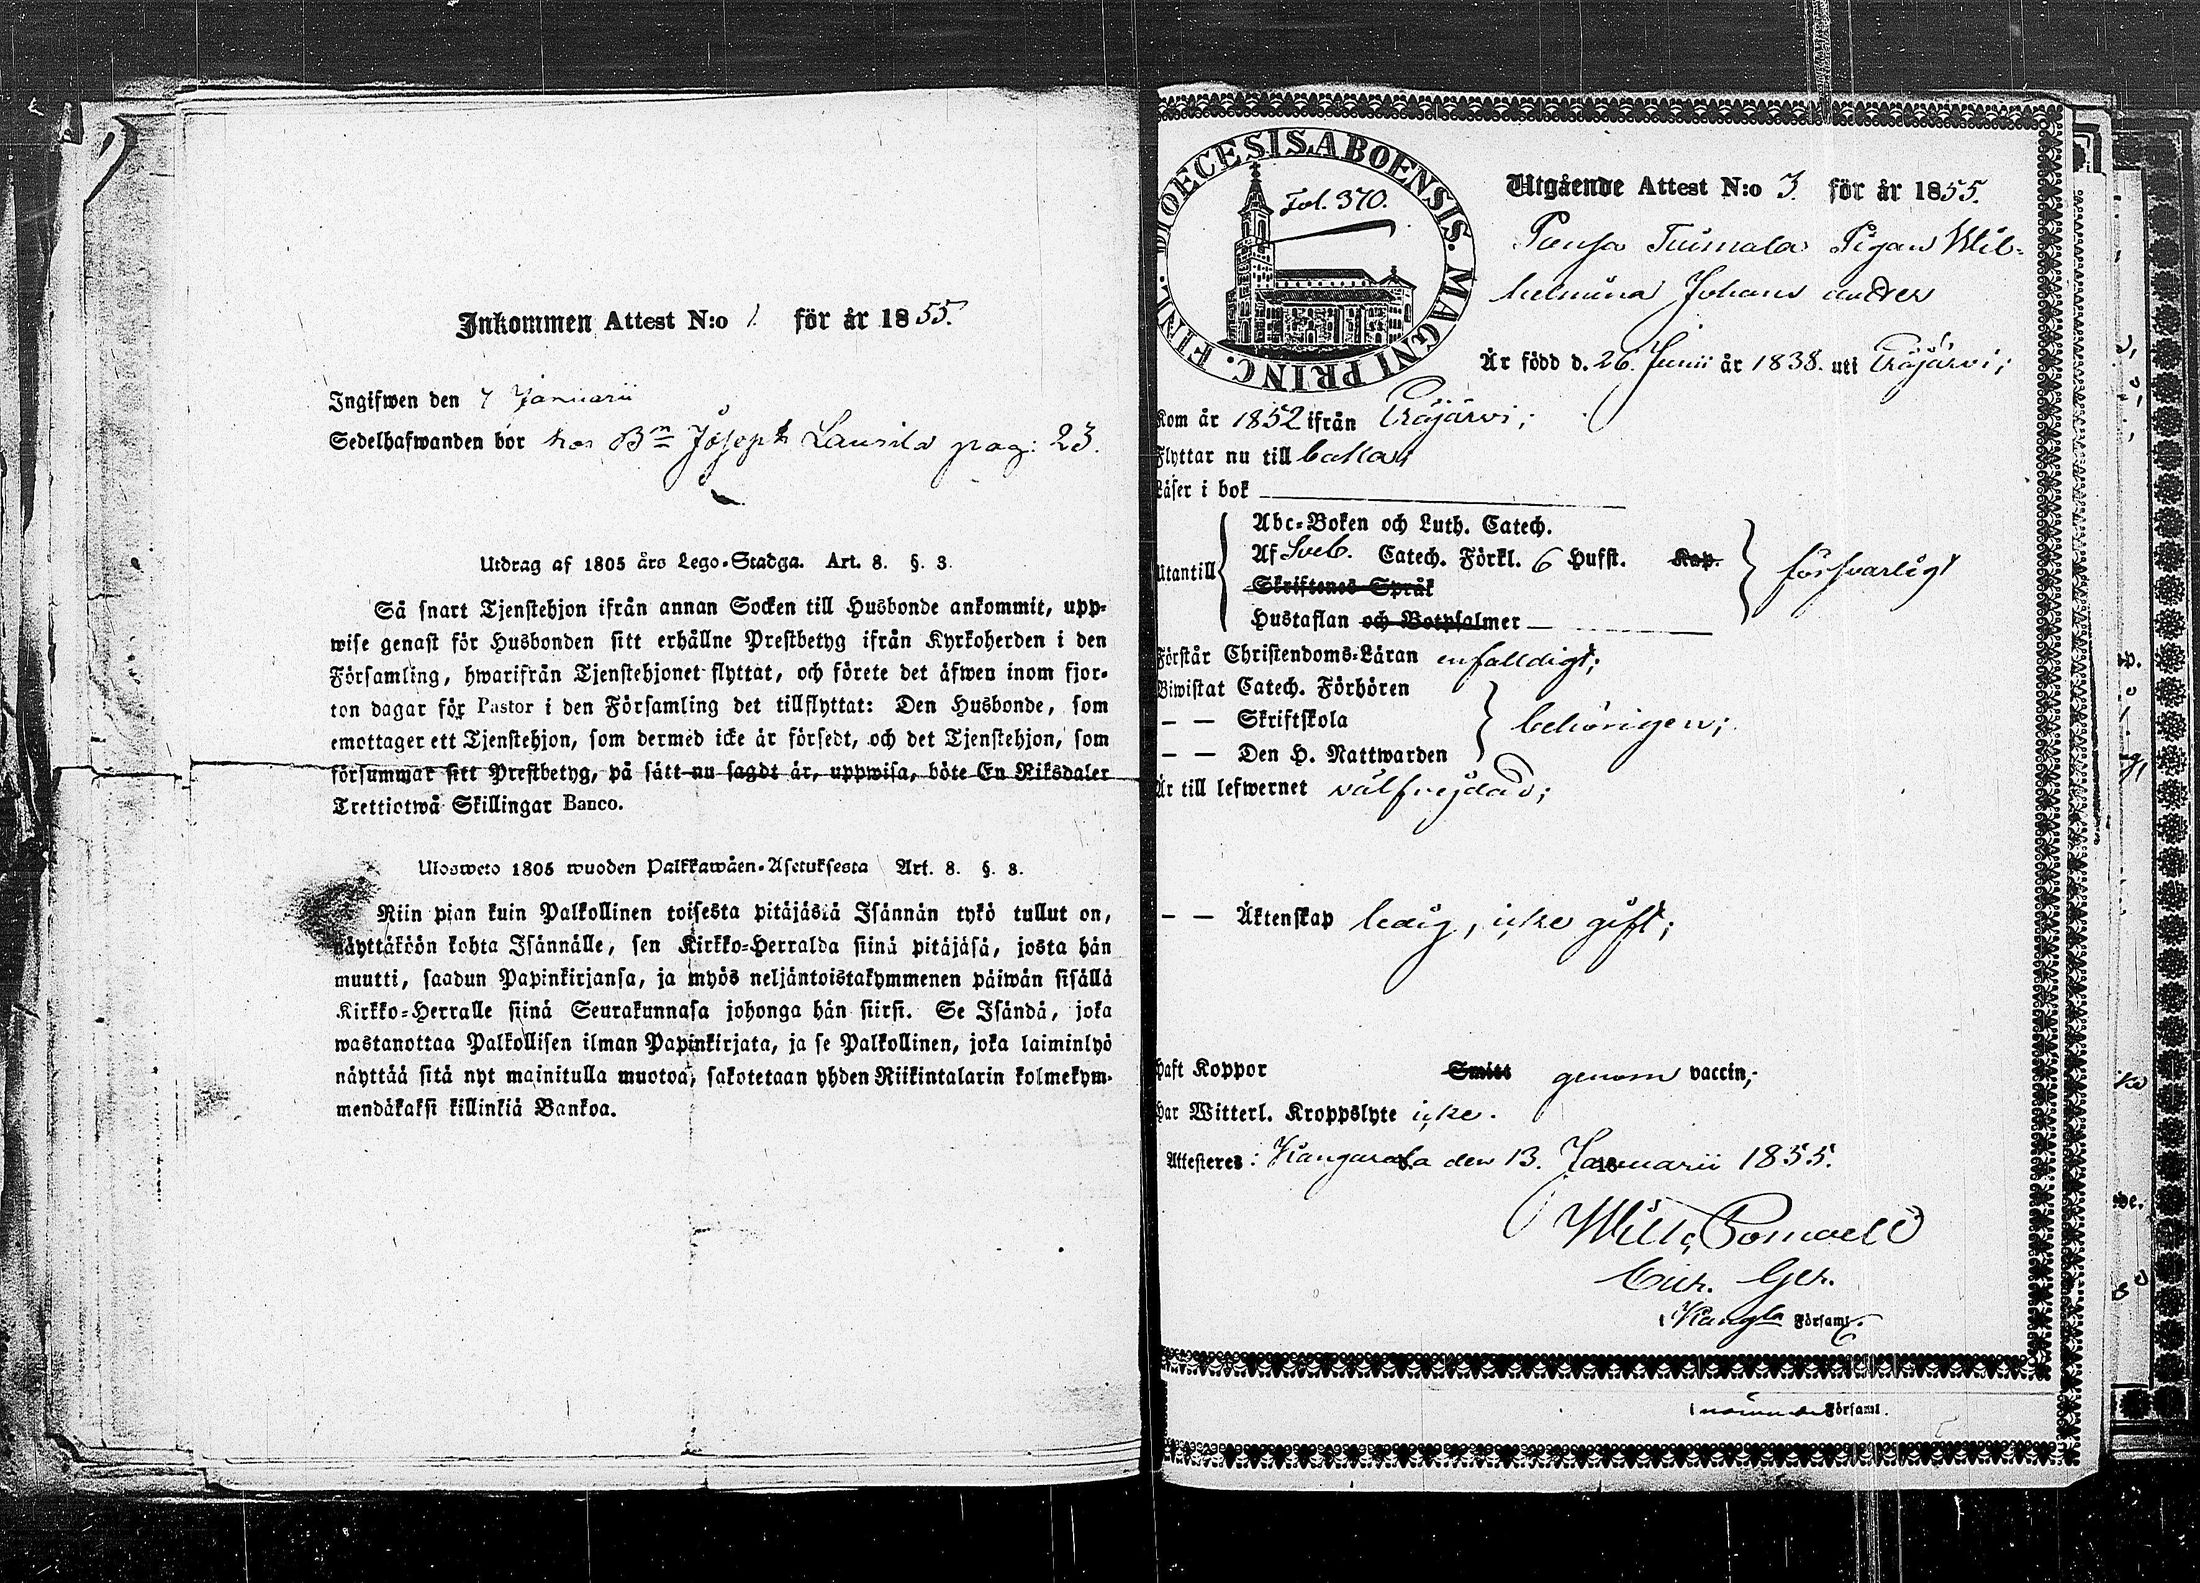 Inkommen Attest N:o 1. för år 1855.
Ingifwen den 7 Januarii
Sedelhafwanden bor hos Bn Joseph Laurila pag: 23.
Utdrag af 1805 års Lego-Stadga. Art. 8. §. 3.
Så snart Tjenstehjon ifrån annan Socken till Husbonde ankommit, upp-
wise genast för Husbonden sitt erhållne Prestbetyg ifrån Kyrkoherden i den
Församling, hwarifrån Tjenstehjonet flyttat, och förete det äfwen inom fjor-
ton dagar för Pastor i den Församling det tillflyttat: Den Husbonde, som
emottager ett Tjenstehjon, som dermed icke är försedt, och det Tjenstehjon, som
försummar sitt Prestbetyg, på sätt nu sagdt är, uppwisa, böte En Riksdaler
Trettiotwå Skillingar Banco.
Ulosweto 1805 wuoden Palkkawäen-Asetuksesta Art. 8. §. 3.
Niin pian kuin Palkollinen toisesta pitäjästä Isännän tykö tullut on,
näyttäköön kohta Isännälle, sen Kirkko-Herralda siinä pitäjäsä, josta hän
muutti, saadun Papinkirjansa, ja myös neljäntoistakymmenen päiwän sisällä
Kirkko-Herralle siinä Seurakunnasa johonga hän siirsi. Se Isändä, joka
wastanottaa Palkollisen ilman Papinkirjata, ja se Palkollinen, joka laiminlyö
näyttää sitä nyt mainitulla muotoa, sakotetaan yhden Riikintalarin kolmekym-
mendäkaksi killinkiä Bankoa.
DIOECESIS ABOENSIS. MAGNI PRINC. FINL.
Fol. 370.
Utgående Attest N:o 3. för år 1855.
Tuimala Pigan Wil-
helmina Johans
Är född d. 26. Junii år 1838. uti
Kom år 1852 ifrån
Flyttar nu till
Läser i bok
Utantill
Abc-Boken och Luth. Catech.
Af Sveb. Catech. Förkl. 6 Hufst. Kap.
Skriftenes Språk
Hustaflan och Botpsalmer
försvarligt
Förstår Christendoms-Läran enfalldigt;
Biwistat Catech. Förhören
— — Skriftskola
— — Den H. Nattwarden
behörigen;
Är till lefwernet välfrejdad;
— — Äktenskap ledig, icke gift;
Haft Koppor Smitt genom vaccin;
Har Witterl. Kroppslyte icke.
Attesteres: Kangasala den 13. Januarii 1855.
Kangla Församl.
Församl.